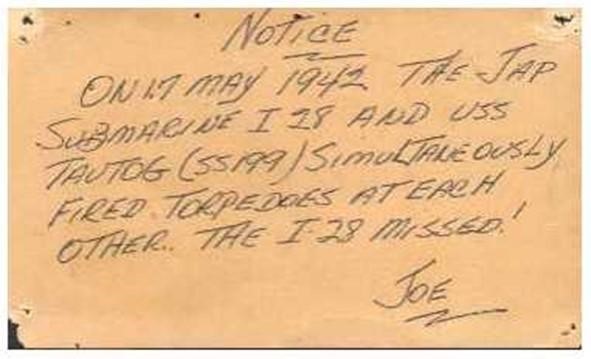 NOTICE
ON 17 MAY 1942 THE JAP
SUBMARINE I 28 AND USS
TAUTOG (SS199) SIMULTANEOUSLY
FIRED TORPEDOES AT EACH
OTHER.. THE I-28 MISSED!
JOE